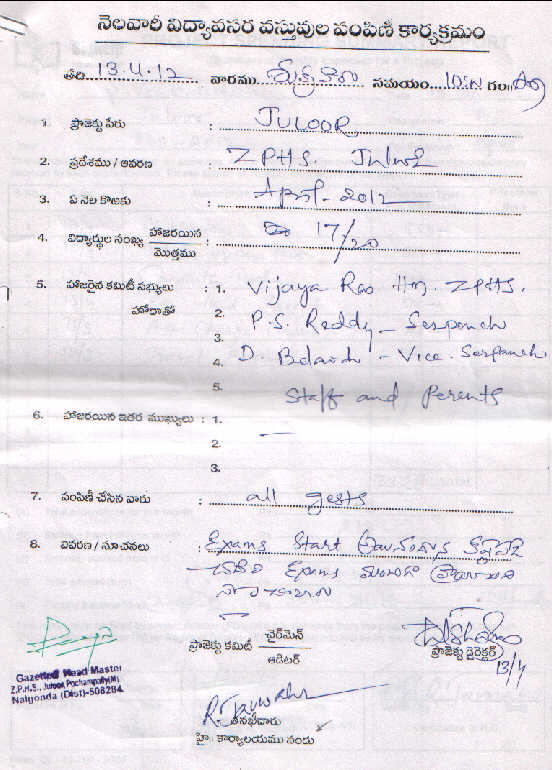 నెలవారీ విద్యావసర వస్తువుల పంపిణీ కార్యక్రమం
తేది. 13.4.12 వారము శుక్రవారం సమయం గం॥
1. ప్రాజెక్టు పేరు : JULOOR
2. ప్రదేశము / ఆవరణ : ZPHS. Juloor
3. ఏ నెల కొఱకు : April - 2012
4. విద్యార్థుల సంఖ్య హాజరయిన / మొత్తము : 17/20
5. హాజరైన కమిటీ సభ్యులు : 1. Vijaya Rao Hm. ZPHS.
హోదాతో 2. P.S. Reddy - Serpanch
3.
4. D. - Vice. Serpanch
5. Staff and Perents
6. హాజరయిన ఇతర ముఖ్యులు : 1. —
2.
3.
7. పంపిణీ చేసిన వారు : all gests
8. వివరణ / సూచనలు : Exams Start
చదివి Exams
ప్రాజెక్టు కమిటీ చైర్‌మెన్ / ఆడిటర్
ప్రాజెక్టు డైరెక్టర్
13/4
Gazetted Head Master
Z.P.H.S., Juloor, Pochampally(M)
Nalgonda (Dist)-508284.
తనిఖీదారు
హై. కార్యాలయము నందు